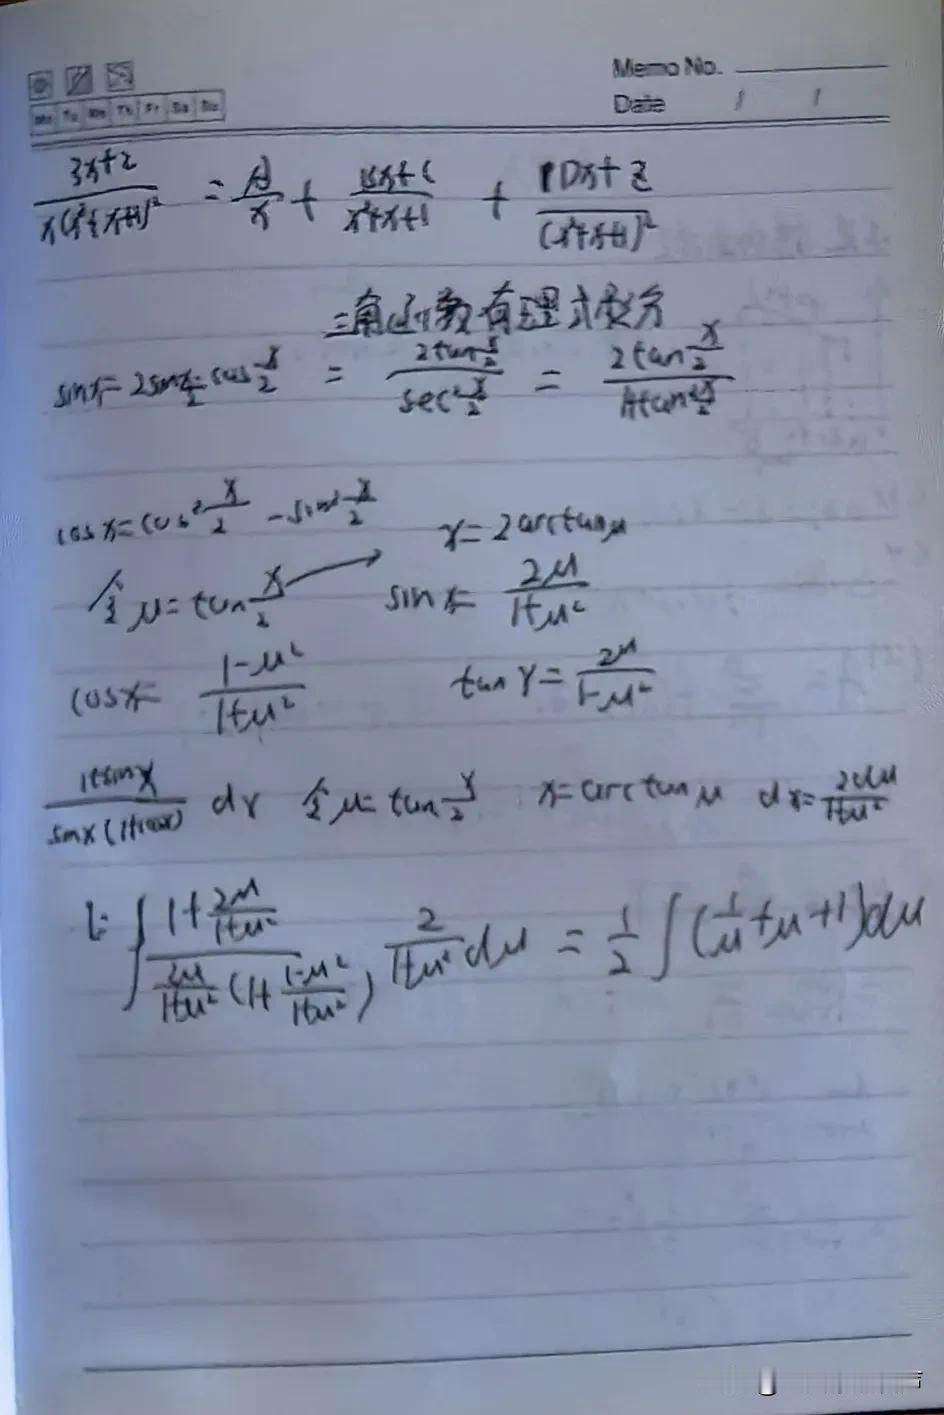 Memo No.
Date / /
Mo Tu We Th Fr Sa Su
(3x+2)/(x(x²+x+1)²) = A/x + (Bx+C)/(x²+x+1) + (Dx+E)/(x²+x+1)²
三角函数有理式积分
sinx = 2sin x/2 cos x/2 = (2tan x/2)/(sec² x/2) = (2tan x/2)/(1+tan² x/2)
cosx = cos² x/2 - sin² x/2
x = 2arctanμ
令 μ = tan x/2 → sinx = 2μ/(1+μ²)
cosx = (1-μ²)/(1+μ²) tanx = 2μ/(1-μ²)
(1+sinx)/(sinx(1+cosx)) dx 令 μ = tan x/2 x = arctanμ dx = 2dμ/(1+μ²)
∫ (1+2μ/(1+μ²))/(2μ/(1+μ²) (1+(1-μ²)/(1+μ²))) 2/(1+μ²) dμ = 1/2 ∫(1/μ+μ+1)dμ